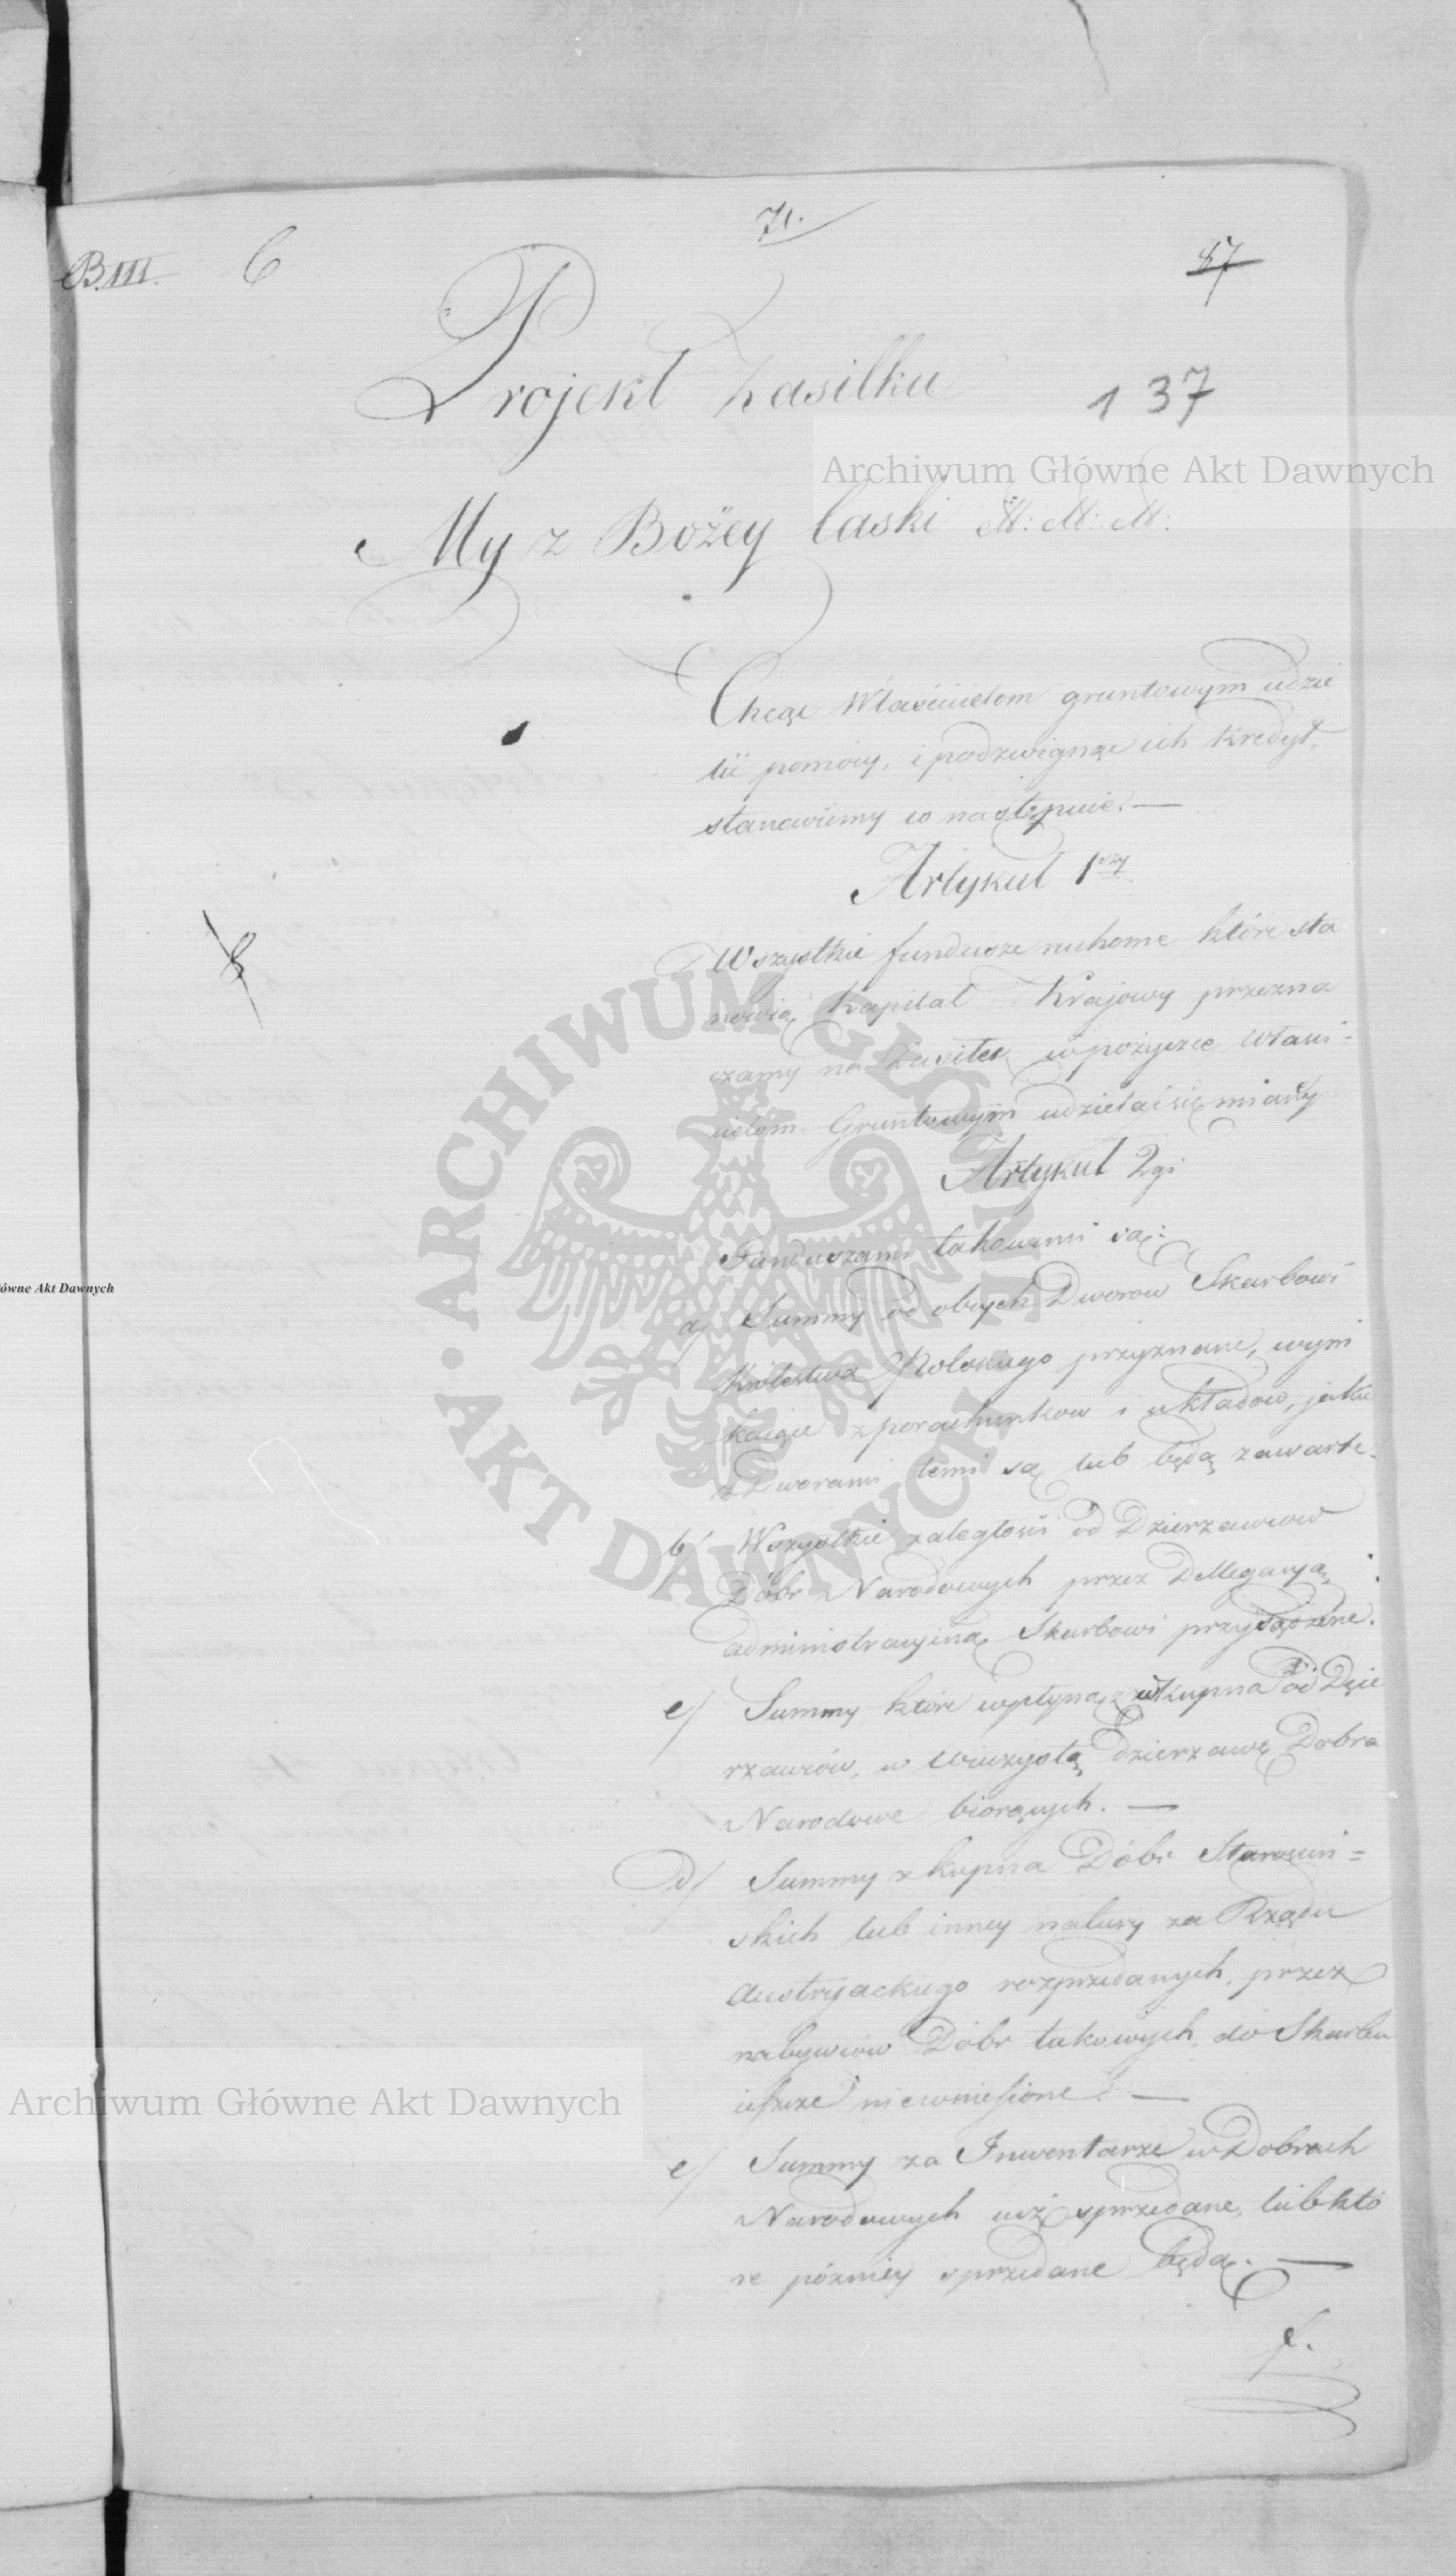 71.
B.III. C
87
Projekt Zasilku
137
Archiwum Główne Akt Dawnych
My z Bożey łaski N: N: N:
Chcąc Właścicielom gruntowym udzie
lić pomocy, i podzwignąć ich Kredyt,
stanowiemy co następuie. —
Artykuł 1szy
Wszystkie fundusze ruchome które sta
nowią Kapitał Krajowy przezna
czamy na Zasiłek w pożyczce Właści=
cielom Gruntowym udzielać się miany
Artykuł 2gi
Funduszami takowemi są:
a/ Summy od obcych Dworow Skarbowi
Królestwa Polskiego przyznane, wyni
kaiące z porachunkow i układow, jakie
z Dworami temi są lub będą zawarte.
b/ Wszystkie zaległości od Dzierzawcow
Dóbr Narodowych przez Dellegacyą
administracyiną Skarbowi przysądzone.
c/ Summy które wpłyną z wkupna od Dzie
rzawców, w Wieczystą dzierzawę Dobra
Narodowe biorących. —
d/ Summy z kupna Dóbr Starościń=
skich lub inney natury za Rządu
Austryackiego rozprzedanych, przez
nabywców Dóbr takowych, do Skarbu
ieszcze niewniesione. —
e/ Summy za Inwentarze w Dobrach
Narodowych iuż sprzedane, lub któ
re pózniey sprzedane będą. —
f.
ARCHIWUM GŁÓWNE • AKT DAWNYCH •
ówne Akt Dawnych
Archiwum Główne Akt Dawnych